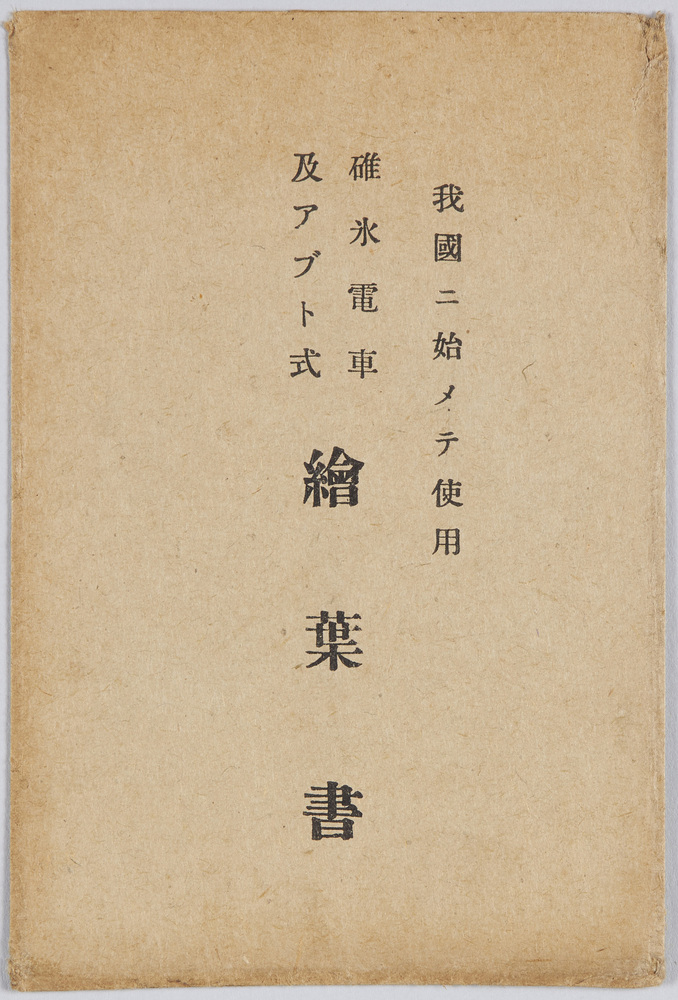 我國ニ始メテ使用
碓氷電車
及アブト式
繪葉書